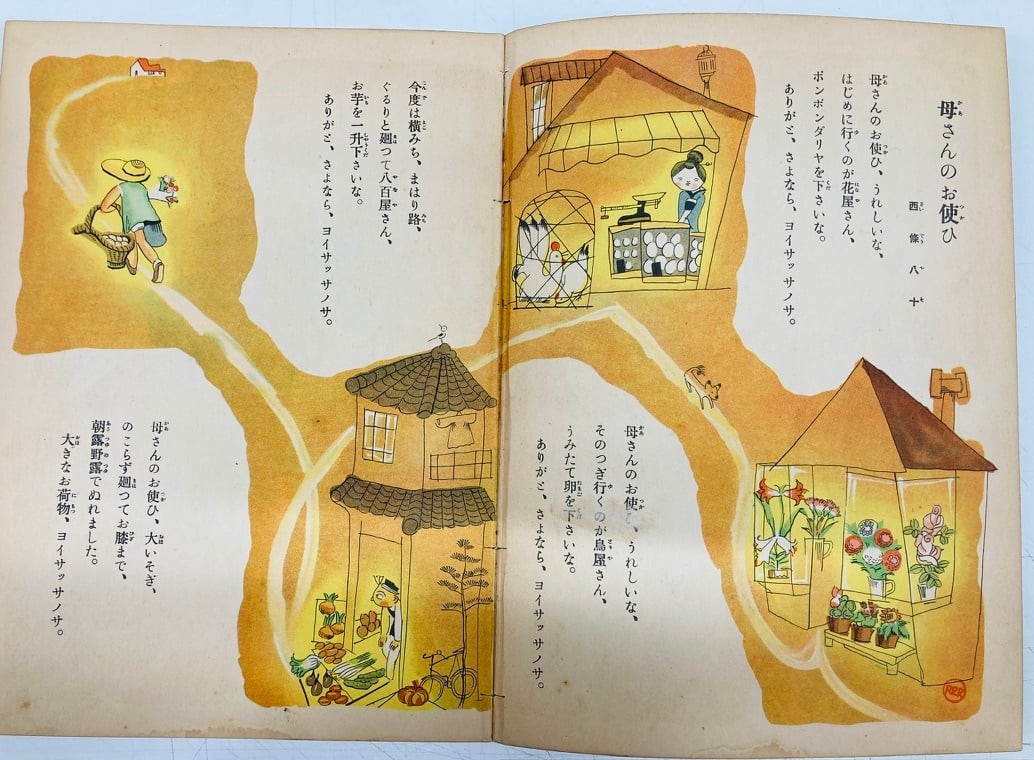 母さんのお使ひ
西條八十
母さんのお使ひ、うれしいな、
はじめに行くのが花屋さん、
ポンポンダリヤを下さいな。
ありがと、さよなら、ヨイサッサノサ。
母さんのお使ひ、うれしいな、
そのつぎ行くのが鳥屋さん、
うみたて卵を下さいな。
ありがと、さよなら、ヨイサッサノサ。
今度は横みち、まはり路、
ぐるりと廻つて八百屋さん、
お芋を一升下さいな。
ありがと、さよなら、ヨイサッサノサ。
母さんのお使ひ、大いそぎ、
のこらず廻つてお膝まで、
朝露野露でぬれました。
大きなお荷物、ヨイサッサノサ。
RRR